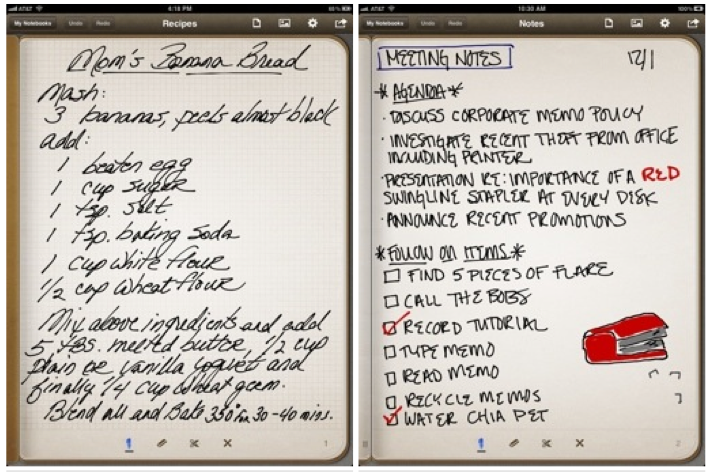 AT&T
4:18 PM
80%
My Notebooks
Undo
Redo
Recipes
Mom's Banana Bread
Mash:
3 bananas, peels almost black
add:
1 beaten egg
1 cup sugar
1 tsp. salt
1 tsp. baking soda
1 cup white flour
1/2 cup wheat flour
Mix above ingredients and add
5 tbs. melted butter, 1/2 cup
plain or vanilla yogurt and
finally 1/4 cup wheat germ.
Blend all and Bake 350° for 30-40 mins.
1
AT&T
10:30 AM
100%
My Notebooks
Undo
Redo
Notes
MEETING NOTES 12/1
* AGENDA *
· DISCUSS CORPORATE MEMO POLICY
· INVESTIGATE RECENT THEFT FROM OFFICE
INCLUDING PRINTER
· PRESENTATION RE: IMPORTANCE OF A RED
SWINGLINE STAPLER AT EVERY DISK
· ANNOUNCE RECENT PROMOTIONS
* FOLLOW ON ITEMS *
FIND 5 PIECES OF FLARE
CALL THE BOBS
RECORD TUTORIAL
TYPE MEMO
READ MEMO
RECYCLE MEMOS
WATER CHIA PET
2